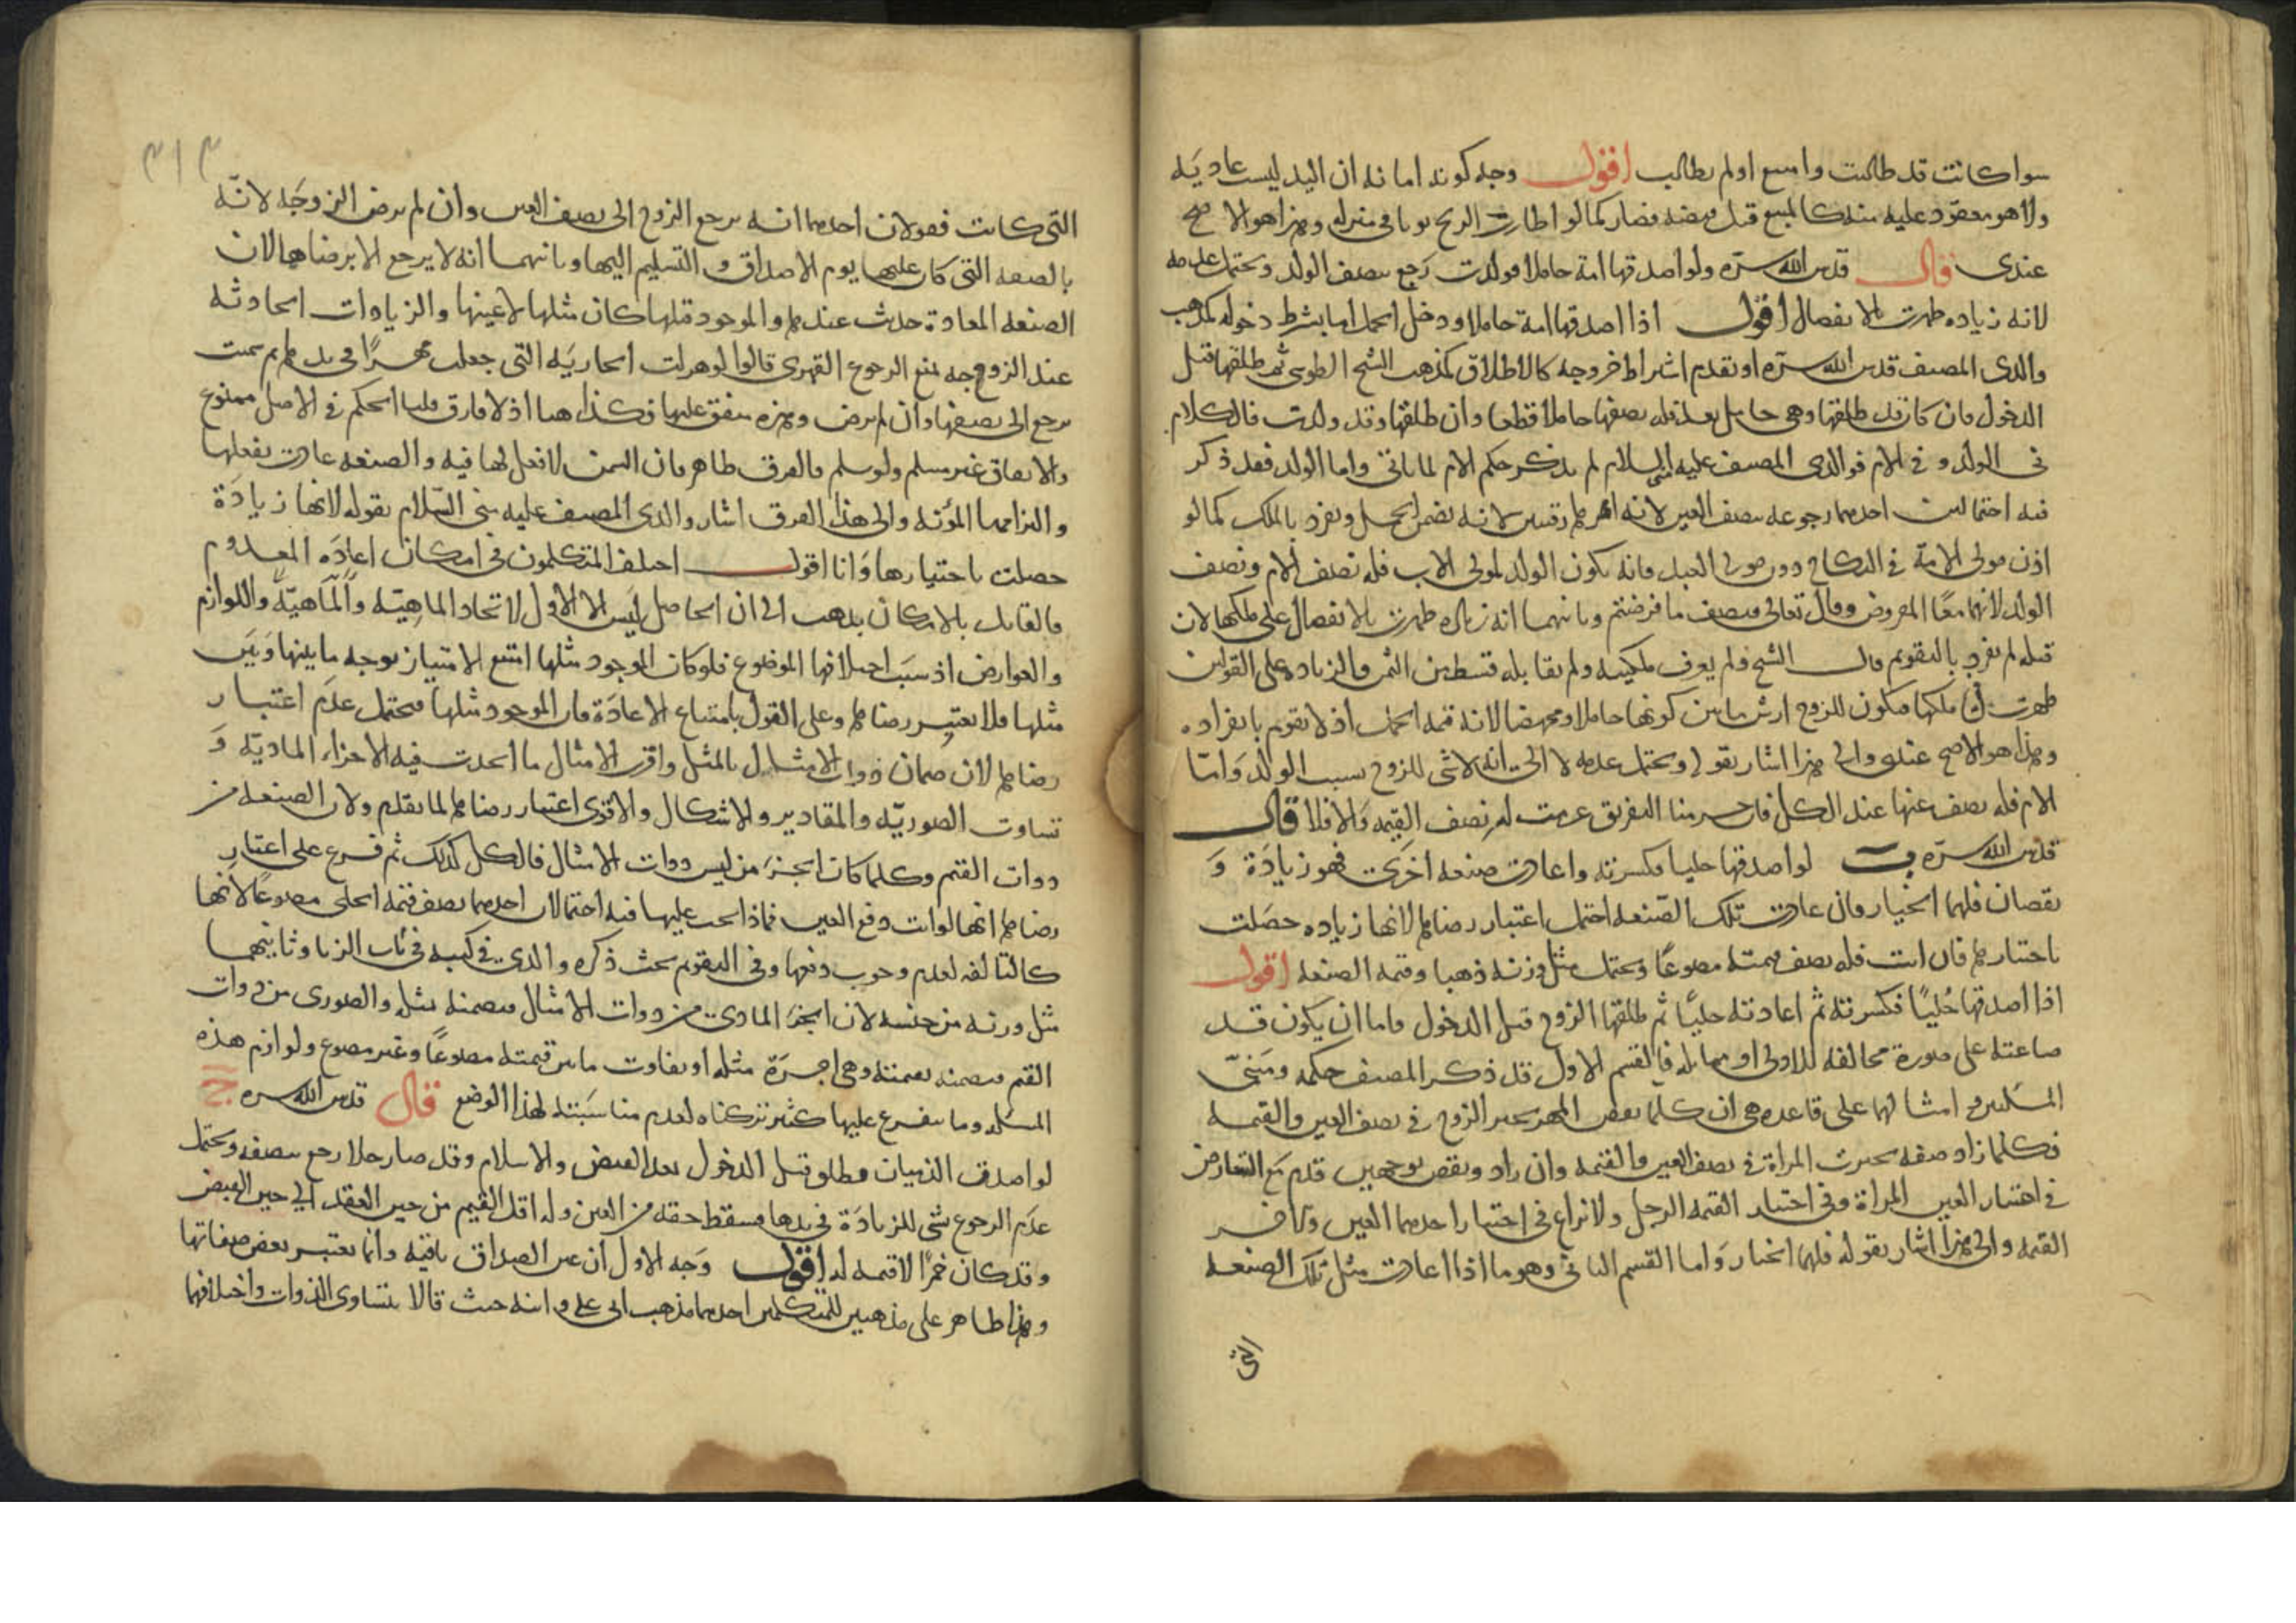 سوا كانت قد طالبت وامتنع او لم يطالب اقول وجه كونه امانه ان اليد ليست عاديَه
ولا هو معقود عليه منه كالمبيع قبل قبضه فصار كما لو اطارت الريح ثوبا في منزله وهذا هو الاصح
عندي قال قدس الله سرّه ولو اصدقها امة حاملا فولدت رَجع بنصف الولد ويحتمل عدمه
لانه زياده ظهرت بالانفصال اقول اذا اصدقها امة حاملا ودخل الحمل اما بشرط دخوله كمذهب
والدي المصنف قدس الله سرّه او بعدم اشتراط خروجه كالاطلاق كمذهب الشيخ الطوسي ثم طلقها قبل
الدخول فان كان قد طلقها وهي حامل بعد فله نصفها حاملا قطعا وان طلقها وقد ولدت فالكلام
في الولد و في الام فوالدي المصنف عليه السلام لم يذكر حكم الام لما ياتي واما الولد فقد ذكر
فيه احتمالين احدهما رجوعه بنصف العين لانه لانه يضمن الحمل ويفرد بالملك كما لو
اذن مولى الامة في النكاح دون مولى العبد فانه يكون الولد لمولى الاب فله نصف الام ونصف
الولد لانهما معًا المفروض وقال تعالى فنصف ما فرضتم وثانيهما انه زياده ظهرت بالانفصال على ملكها لان
قبله لم يفرد بالتقويم قال الشيخ ولم يعرف ملكيته ولم يقابله قسط من الثمن فالزياده على القولين
ظهرت في ملكها فيكون للزوج ارش ما بين كونها حاملا ومجهضا لانه قيمة الحمل اذ لا يقوم بانفراده
وهذا هو الاصح عندي والى هذا اشار بقوله ويحتمل عدمه لا الى انه لا شي للزوج بسبب الولد وَامّا
الام فله نصف عينها عند الكل فان حرمنا التفريق غرمت له نصف القيمه وَالا فلا قال
قدس الله سرّه ب لو اصدقها حليا فكسرته واعادت صنعه اخرَى فهو زيادَة وَ
نقصان فلهما الخيار فان عادت تلك الصّنعه احتمل اعتبار رضاها لانها زياده حصَلت
باختيارها فان ابت فله نصف قيمته مصوغًا ويحتمل مثل وزنه ذهبا وقيمه الصنعه اقول
اذا اصدقها حُليًا فكسرته ثم اعادته حليًا ثم طلقها الزوج قبل الدخول فاما ان يكون قد
صاغته على صورة مخالفه للاولى او مماثله فالقسم الاول قد ذكر المصنف حكمه ومَبنىّ
المسَلتين وامثالهما على قاعده هي ان كلما نقص المهر تخير الزوج في نصف العين والقيمه
فكلما زاد صفه تخيرت المراة في نصف العين والقيمه وان زاد ونقص بوجهين قدم مَع التعارض
في اختيار العين المراة وفي اختيار القيمه الرجل ولا نزاع في اختيار احدهما العين والاخر
القيمه والى هذا اشار بقوله فلهما الخيار وَاما القسم الثاني وهو ما اذا اعادت مثل تلك الصنعه
التي
٣١٣
التى كانت فقولان احدهما انه يرجع الزوج الى نصف العين وان لم يرض الزوجَه لانّه
بالصفه التى كان عليها يوم الاصداق و التسليم اليها وثانيهما انه لا يرجع الا برضاها لان
الصنعه المعادة حدث عندها والموجود قبلها كان مثلها لا عينها والزيادات الحادثه
عند الزوجه تمنع الرجوع القهرى قالوا لو هزلت الجاريَه التى جعلت مهرًا في يدها ثم سمنت
يرجع الى نصفها وان لم يرض وهذه متفق عليها فكذا هنا اذ لا فارق قلنا الحكم في الاصل ممنوع
والاتفاق غير مسلم ولو سلم فالفرق ظاهر فان السمن لا فعل لها فيه والصنعه عادت بفعلها
والتزامها المؤنه والى هذا الفرق اشار والدى المصنف عليه منى السّلام بقوله لانها زيادَة
حصلت باختيارها وَانا اقول اختلف المتكلمون في امكان اعادَه المعدوم
فالقايل بالامكان يذهب الى ان الحاصل ليس الا الاول لاتحاد الماهيّه وَالمَاهيّه واللوازم
والعوارض اذ سبَب اختلافها الموضوع فلو كان الموجود مثلها امتنع الامتياز بوجه ما بينها وَبَين
مثلها فلا يعتبر رضاها وعلى القول بامتناع الاعادَة فان الموجود مثلها فيحتمل عدَم اعتبار
رضاها لان ضمان ذوات الامثال بالمثل واقرب الامثال ما اتحدت فيه الاجزاء الماديّه وَ
تساوت الصوريّه والمقادير والاشكال والاقوى اعتبار رضاها لما تقدم ولان الصنعه من
ذوات القيم وكلما كان الجزء من ليس ذوات الامثال فالكل كذلك ثم فرع على اعتبار
رضاها انها لو ابت دفع العين فماذا يجب عليها فيه احتمالان احدهما نصف قيمه الحلى مصوغًا لانها
كالتالفه لعدم وجوب دفعها وفي التقويم بحث ذكره والدى في كتبه في باب الربا وثانيهما
مثل وزنه من جنسه لان الجزء المادى من ذوات الامثال فيضمنه بمثله والصورى من ذوات
القيم فيضمنه بقيمته وهى اجرَة مثله او تفاوت ما بين قيمته مصوغًا وغير مصوغ ولوازم هذه
المسَله وما يتفرع عليها كثير تركناه لعدم مناسَبته لهذا الوضع قال قدس الله سره ج
لو اصدق الذميان فطلق قبل الدخول بعد القبض والاسلام وقد صار خلا رجع بنصفه ويحتمل
عدَم الرجوع بشى للزيادَة في يدها فيسقط حقه من العين وله اقل القيم من حين العقد الى حين القبض
وقد كان خمرًا لا قيمه له اقول وَجه الاول ان عين الصداق باقيه وانما تغير بعض صفاتها
وهذا ظاهر على مذهبين للمتكلمين احدهما مذهب ابى على وابنه حيث قالا بتساوى الذوات واختلافها